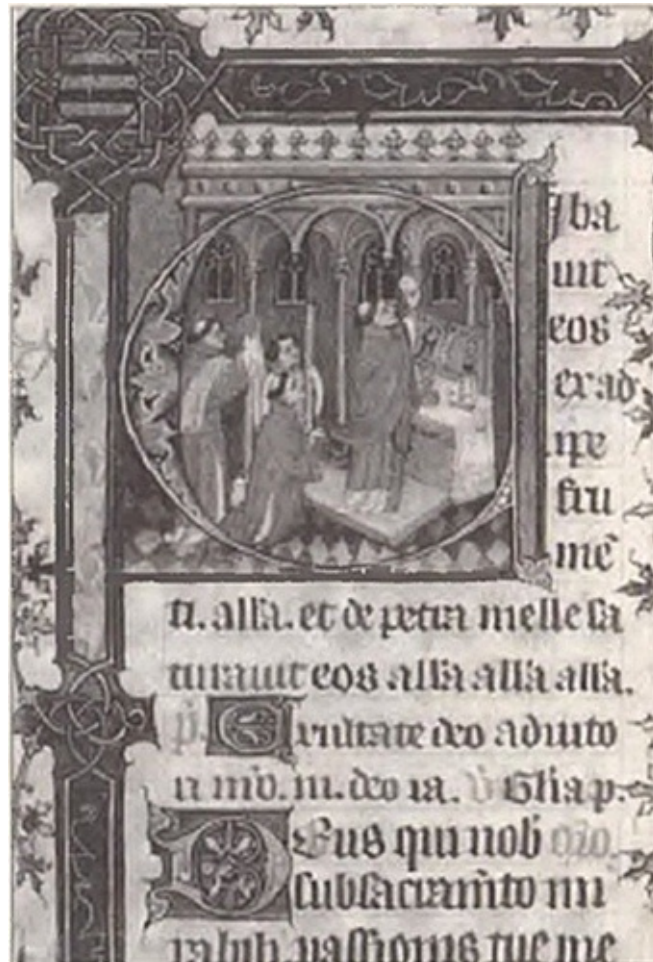 Ciba
uit
eos
ex ad
ipe
fru
mē
ti. alla. et de petra melle sa
turauit eos alla alla alla.
p. Exultate deo adiuto
ri nrō. iu. deo ia. v Glia p.
Deus qui nob oro.
sub sacramto mi
rabili passionis tue me